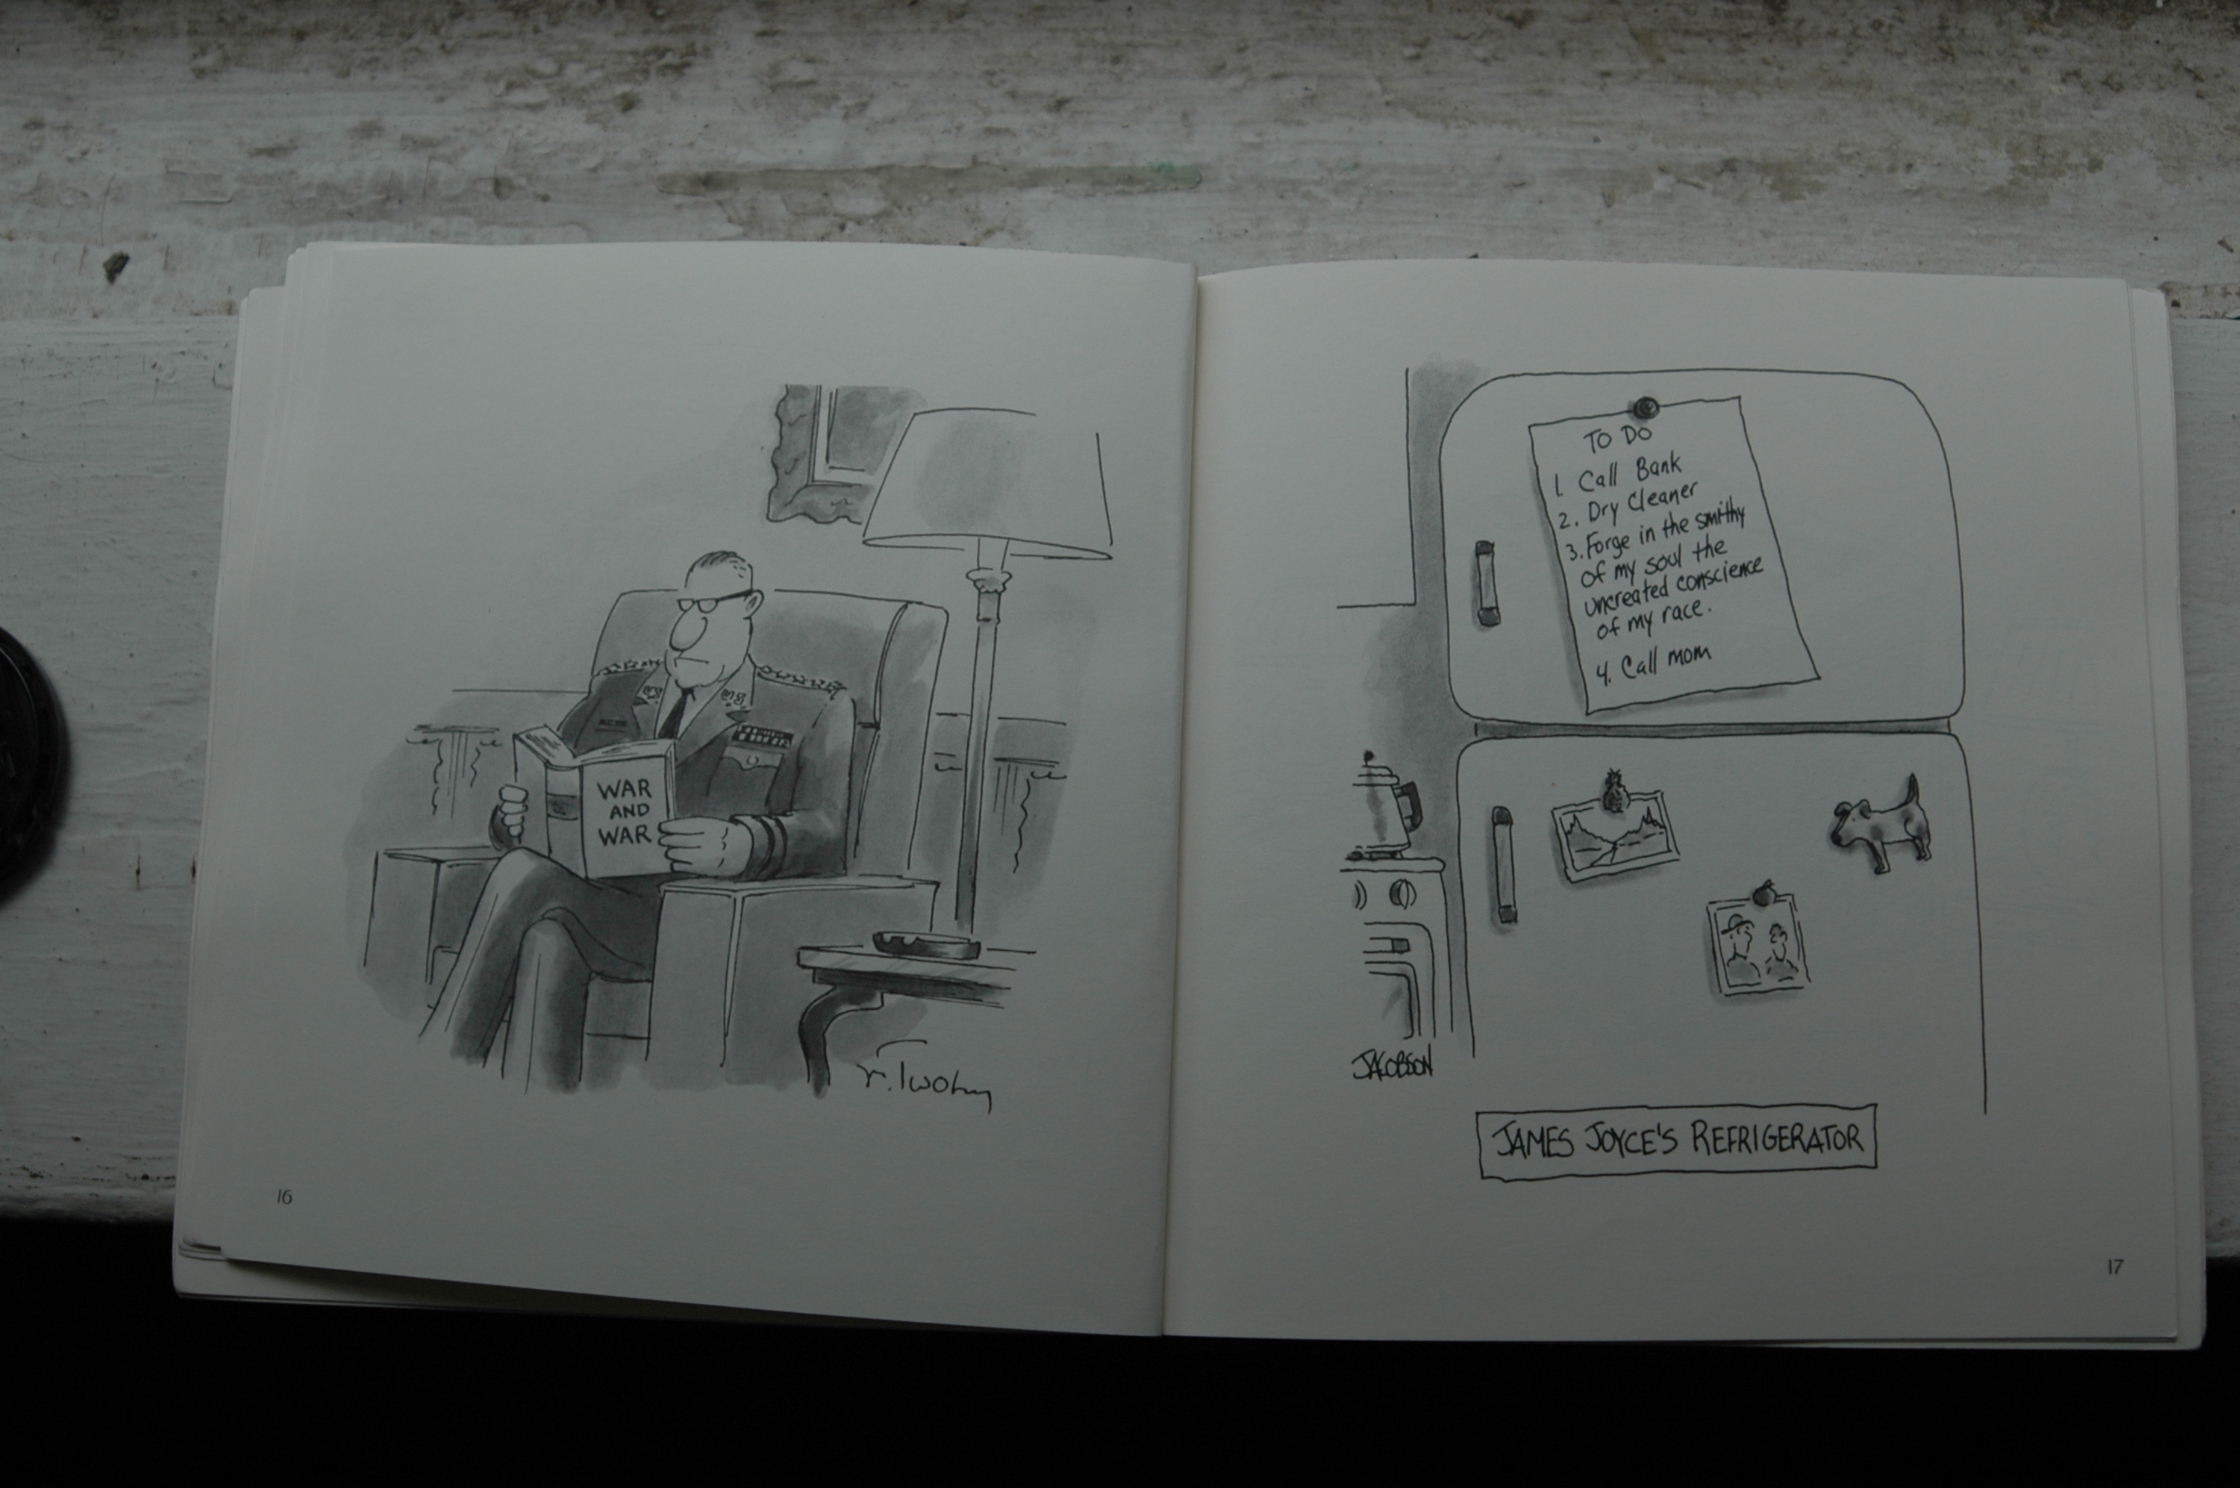 WAR
AND
WAR
r. Twohy
16
TO DO
1 Call Bank
2. Dry cleaner
3. Forge in the smithy
of my soul the
uncreated conscience
of my race.
4. Call mom
JACOBSON
JAMES JOYCE'S REFRIGERATOR
17